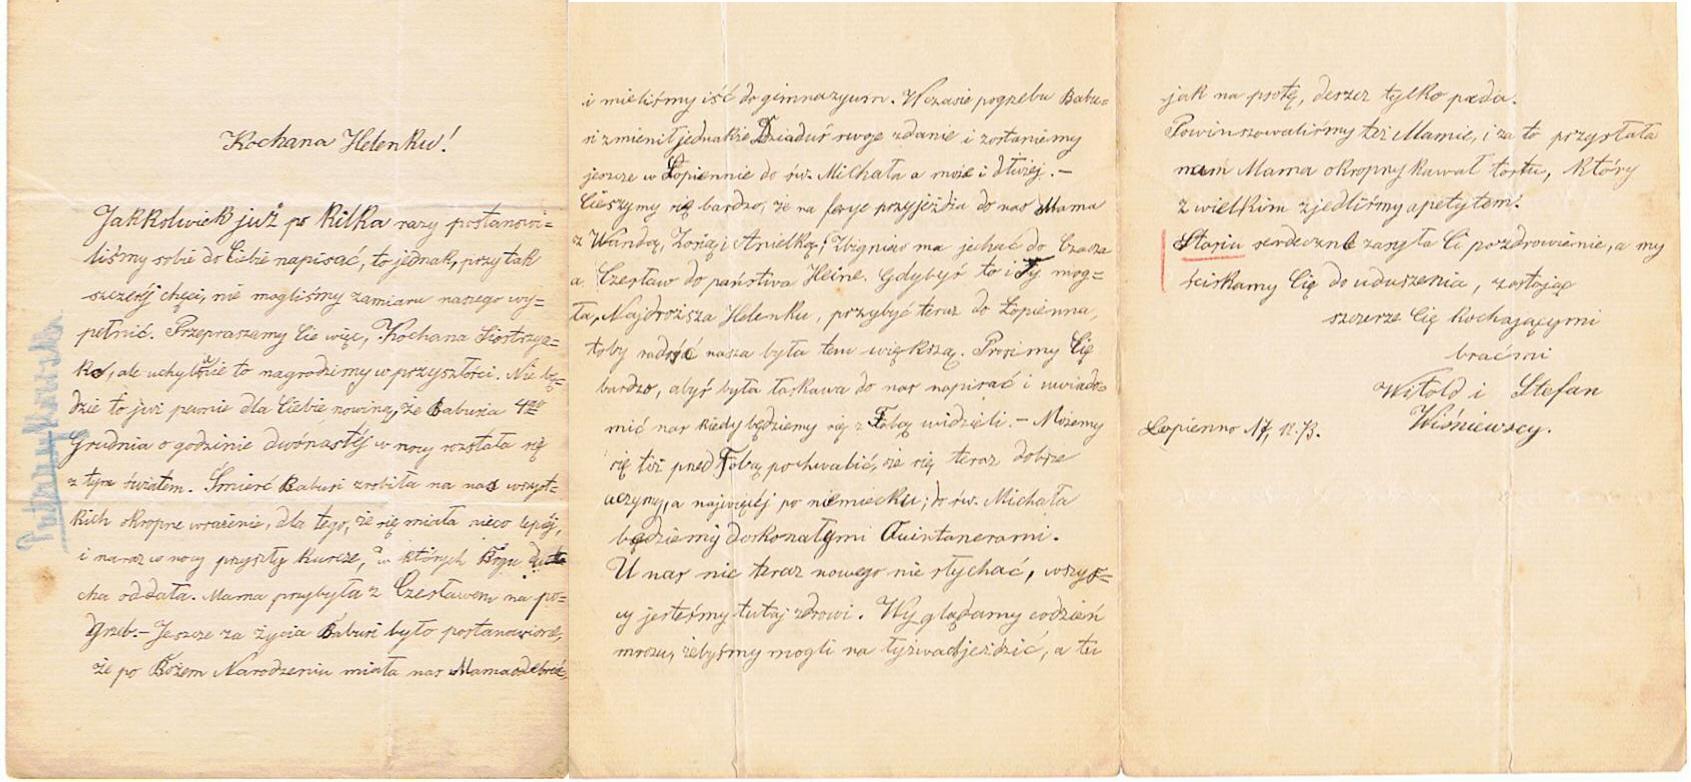 Kochana Helenku!
Jakkolwiek już po kilka razy postanowi=
liśmy sobie do Ciebie napisać, to jednak, przy tak
szczeréj chęci, nie mogliśmy zamiaru naszego wy=
pełnić. Przepraszamy Cie więc, Kochana Siostrzycz=
ko, ale uchybienie to nagrodzimy w przyszłości. Nie bę=
dzie to już pewnie dla Ciebie nowiną, że Babusia 4go
Grudnia o godzinie dwónastéj w nocy rozstała się
z tym światem. Śmierć Babusi zrobiła na nas wszyst=
kich okropne wrażenie, dla tego, że się miała nieco lepéj,
i naraz w nocy przyszły kurcze, w których Bogu du=
cha oddała. Mama przybyła z Czesławem na po=
grzeb. – Jeszcze za życia Babusi było postanowione,
że po Bożem Narodzeniu miała nas Mama odebrać,
i mieliśmy iść do gimnazyum. W czasie pogrzebu Babu=
si zmienił jednakże Dziaduś swoje zdanie i zostaniemy
jeszcze w Łopiennie do św. Michała a może i dłużéj. –
Cieszymy się bardzo, że na ferye przyjeżdża do nas Mama
z Wandzą, Zosią i Anielką; Zbigniew ma jechać do Czacza
a Czesław do państwa Heine. Gdybyś to i Ty mog=
ła, Najdroższa Helenku, przybyć teraz do Łopienna,
toby radość nasza była tem większą. Prosimy Cię
bardzo, abyś była łaskawa do nas napisać i uwiado=
mić nas kiedy będziemy się z Tobą widzieli. – Możemy
się też przed Tobą pochwalić, że się teraz dobrze
uczymy, a najwięcéj po niemiecku; do św. Michała
będziemy doskonałymi Quintanerami.
U nas nic teraz nowego nie słychać, wszys=
cy jesteśmy tutaj zdrowi. Wyglądamy codzień
mrozu, żebyśmy mogli na łyżwach jeździć, a tu
jak na psotę, deszcz tylko pada.
Powinszowaliśmy też Mamie, i za to przysłała
nam Mama okropny kawał tortu, który
z wielkim zjedliśmy apetytem.
Stasiu serdeczne zasyła Ci pozdrowienie, a my
ściskamy Cię do uduszenia, zostając
szczerze Cię kochającymi
braćmi
Witold i Stefan
Wiśniewscy.
Łopienno 17, 12. 73.